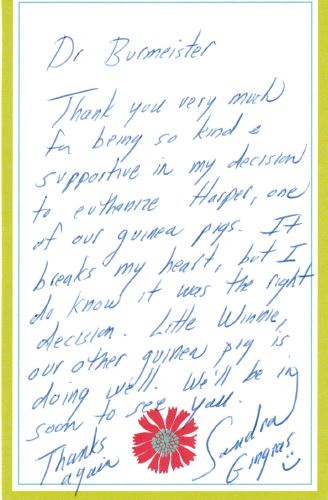 Dr Burmeister
Thank you very much
for being so kind &
supportive in my decision
to euthanize Harper, one
of our guinea pigs. It
breaks my heart, but I
do know it was the right
decision. Little Winnie,
our other guinea pig is
doing well. We'll be in
soon to see you.
Thanks
again
Sandra
Gingras